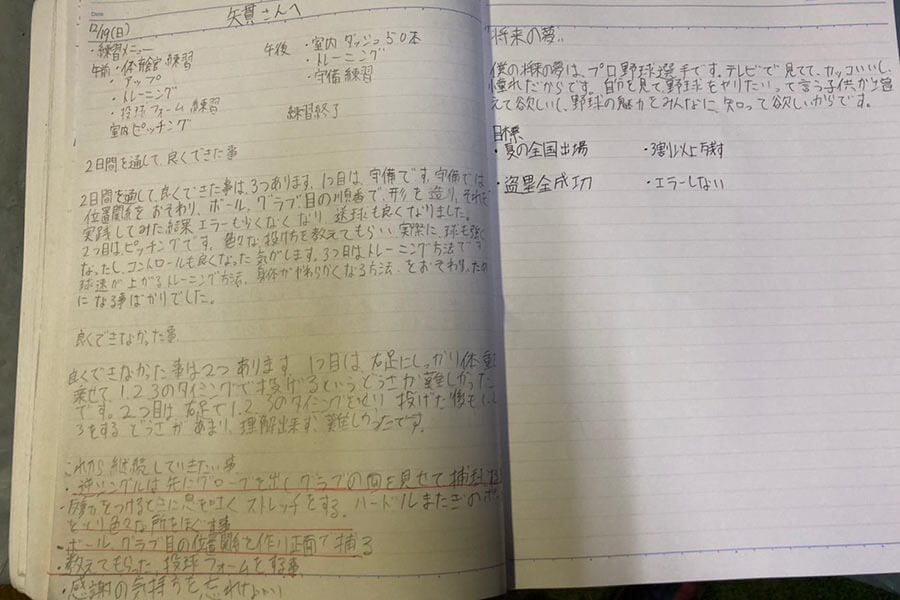 Date
矢貫さんへ
12/19(日)
・練習メニュー
午前・体育館練習
・アップ
・トレーニング
・投球フォーム練習
室内ピッチング
午後・室内ダッシュ50本
・トレーニング
・守備練習
練習終了
2日間を通して、良くできた事
2日間を通して、良くできた事は、3つあります。1つ目は、守備です。守備では
位置関係をおそわり、ボール、グラブ目の順番で、形を造り、それを
実践してみた結果エラーも少くなくなり送球も良くなりました。
2つ目はピッチングです。色々な投げ方を教えてもらい、実際に、球も強く
なったし、コントロールも良くなった気がします。3つ目はトレーニング方法です
球速が上がるトレーニング方法、身体がやわらかくなる方法、をおそわり、ため
になる事ばかりでした。
良くできなかった事
良くできなかった事は2つあります。1つ目は右足にしっかり体重
乗せて1.2.3のタイミングで投げるというどうさが難しかった
です。2つ目は右足で1.2.3のタイミングをとり投げた後も1.2
3をするどうさがあまり、理解出来ず、難しかったです。
これから継続していきたい事
・逆シングルは先にグローブを出しグラブの面を見せて捕球
に息を吐くストレッチをする。ハードルまたぎの
をとり色々な所をほぐす事
・ボールグラブ目の位置関係を作り正面で捕る
・教えてもらった投球フォームをする事
・感謝の気持ちを忘れない
将来の夢
僕の将来の夢は、プロ野球選手です。テレビで見てて、カッコいいし、
憧れだからです。自分を見て野球をやりたいって言う子供が増
えて欲しいし、野球の魅力をみんなに知って欲しいからです。
目標
・夏の全国出場 ・3割以上残す
・盗塁全成功 ・エラーしない